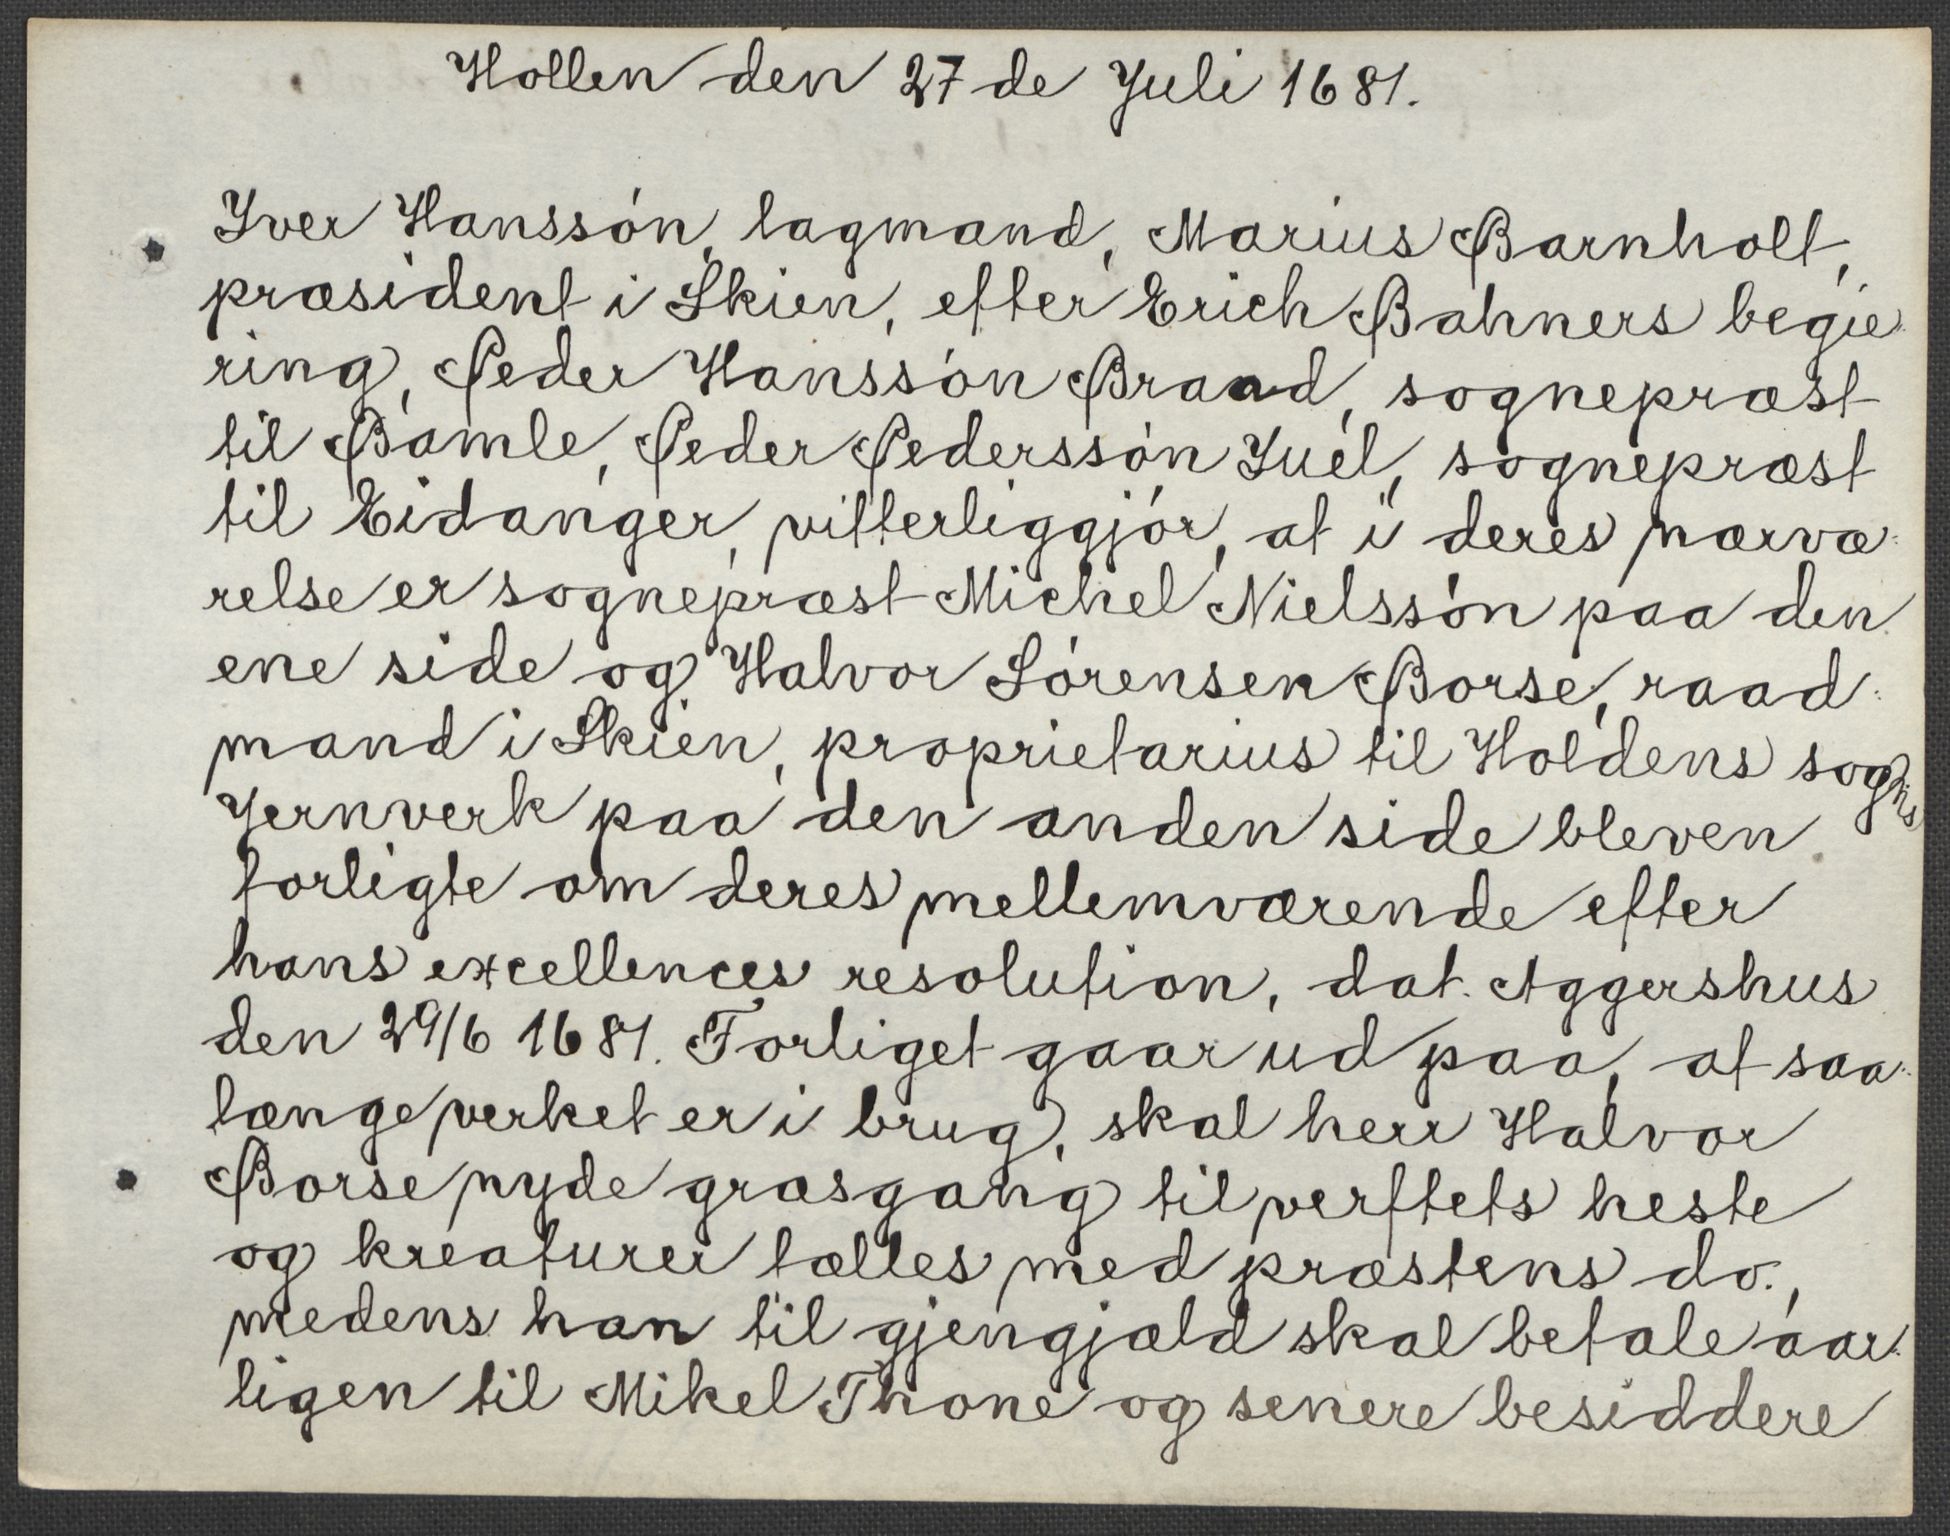 Hollen den 27de Juli 1681.
Iver Hanssón, lagmand, Marius Barnholt,
præsident i Skien, efter Erich Bahners begjæ-
ring, Peder Hanssón Braad, sognepræst
til Bamle, Peder Pederssón Juel, sognepræst
til Eidanger, vitterliggjór, at i deres nærvæ-
relse er sognepræst Michel Nielssón paa den
ene side og Halvor Sórensen Borse, raad-
mand i Skien, proprietarius til Holdens sogns
Jernverk paa den anden side bleven
forligte om deres mellemværende efter
hans excellences resolution, dat. Aggershus
den 29/6 1681. Forliget gaar ud paa, at saa-
længe verket er i brug, skal herr Halvor
Borse nyde græsgang til verftets heste
og kreaturer fælles med præstens do.,
medens han til gjengjæld skal betale aar-
ligen til Mikel Thone og senere besiddere